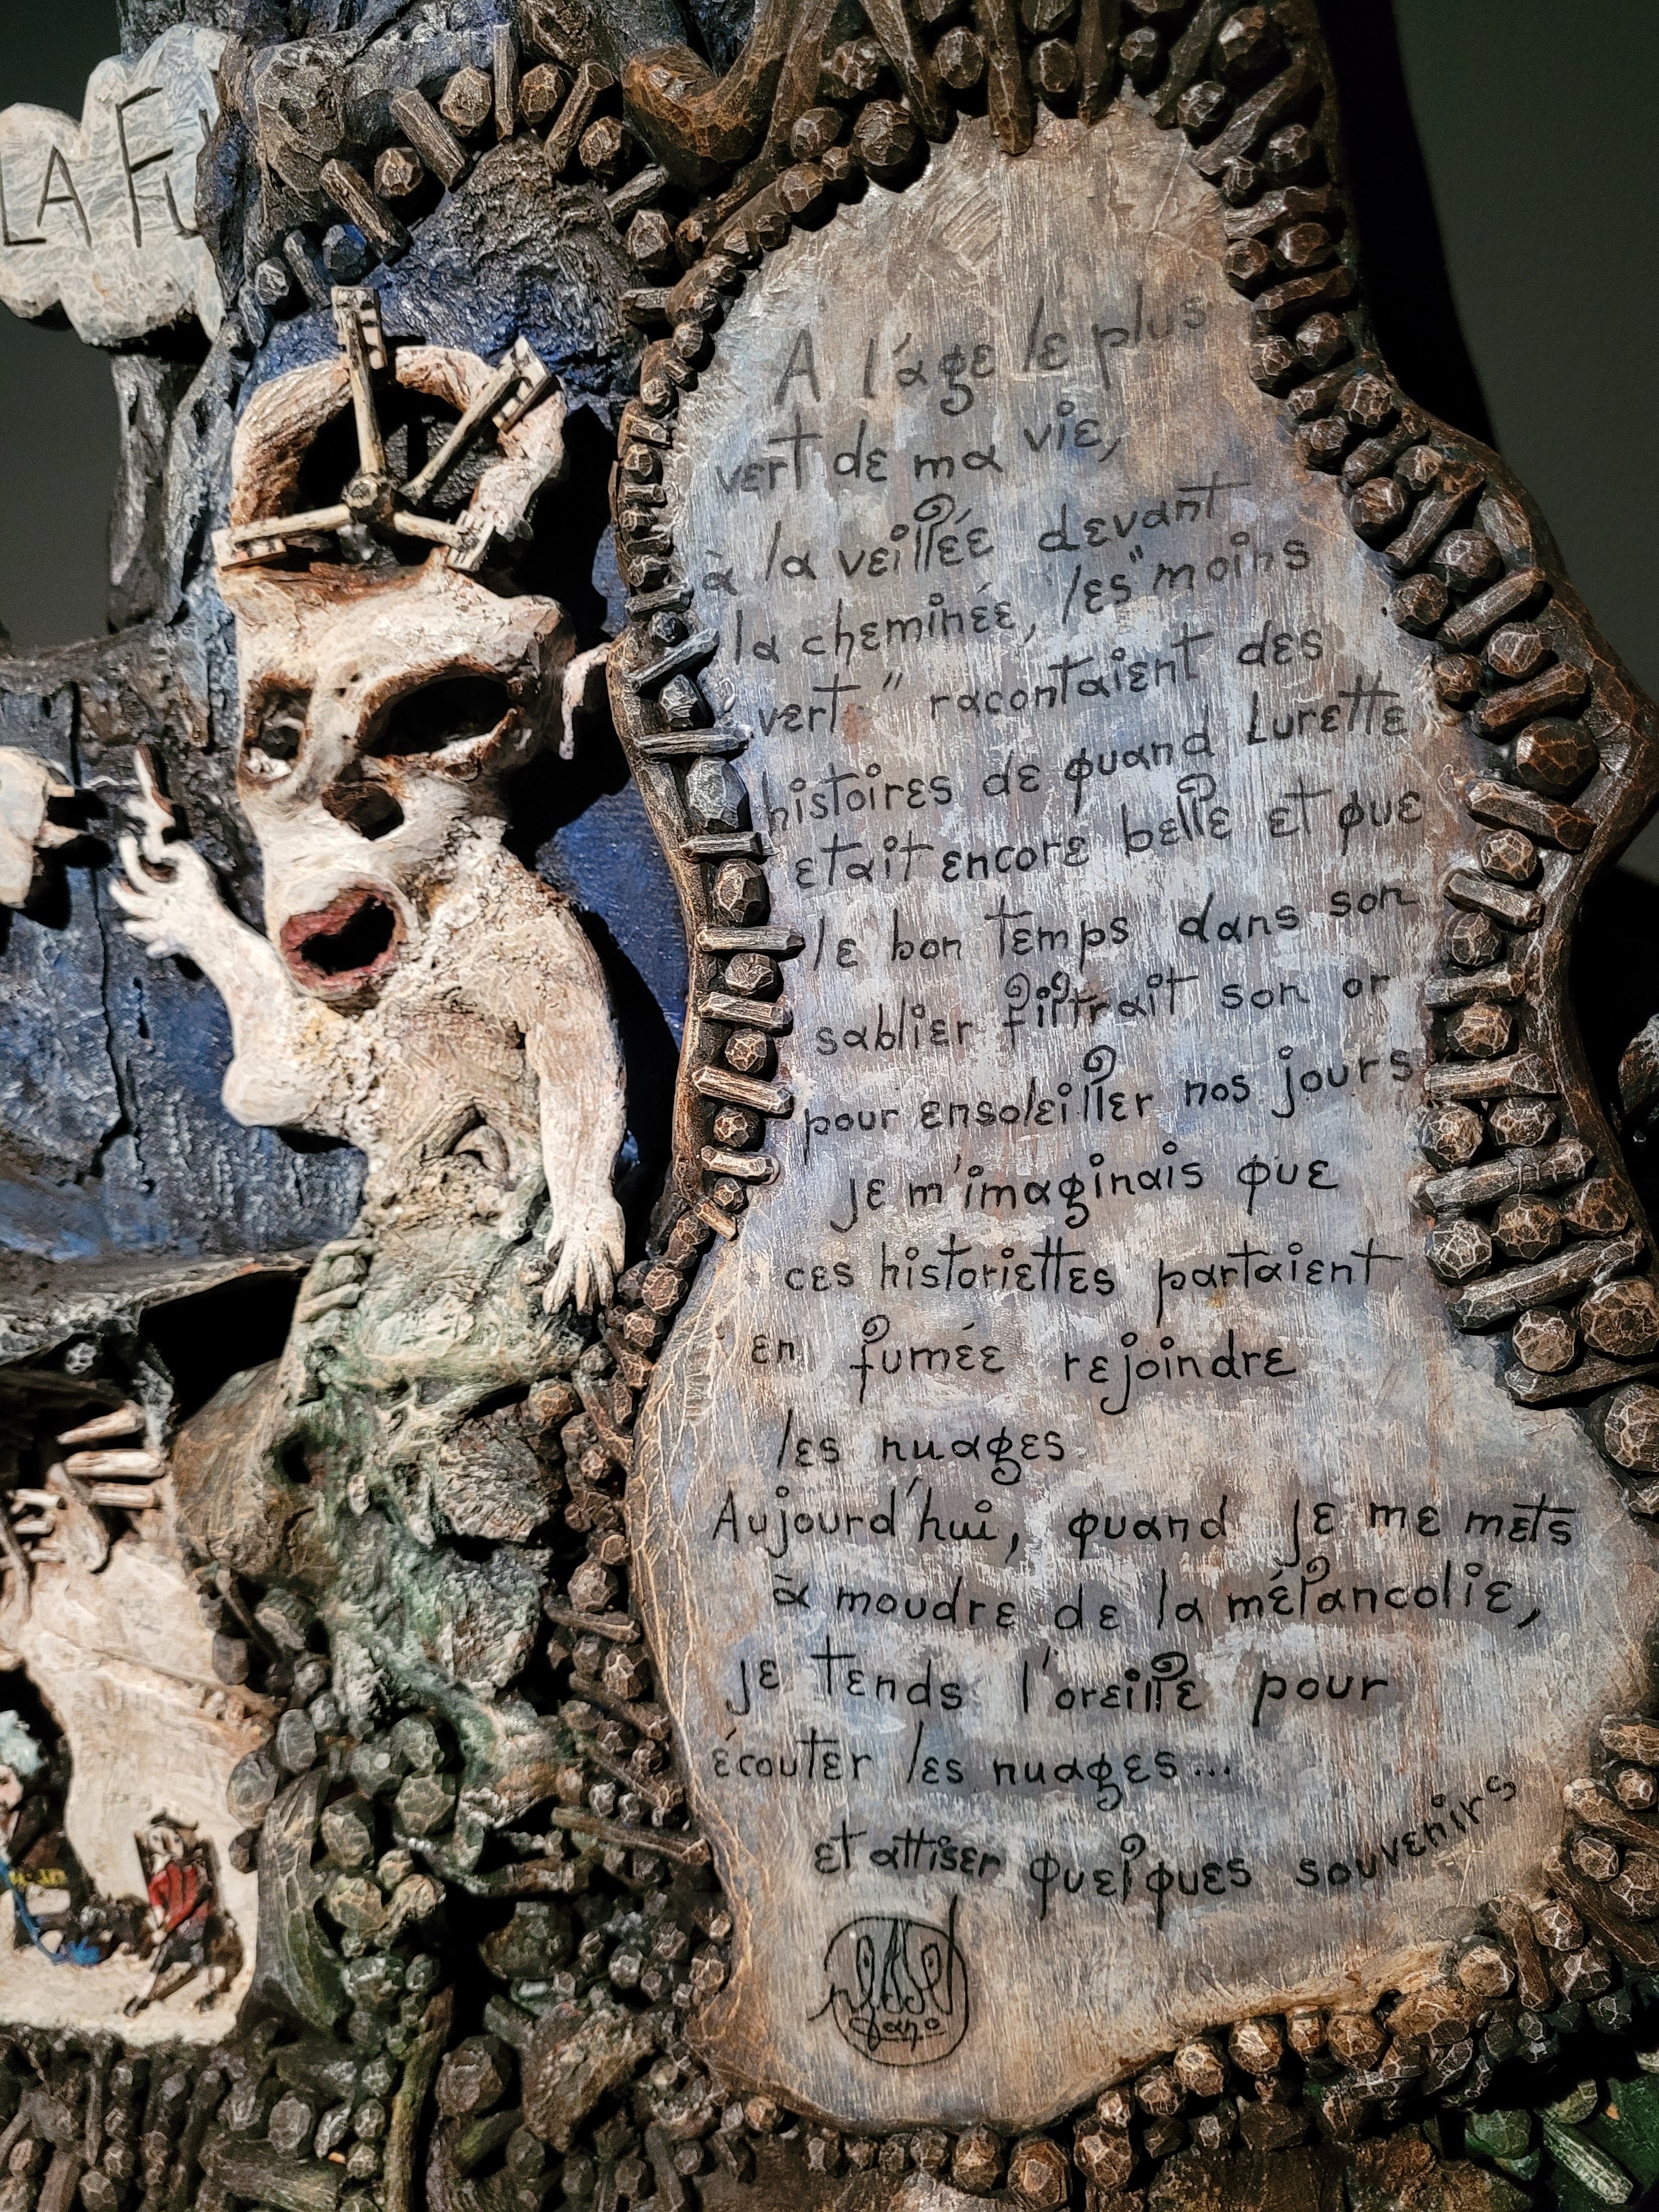 LA FU
A l'age le plus
vert de ma vie,
à la veillée devant
la cheminée, les "moins
vert" racontaient des
histoires de quand Lurette
etait encore belle et que
le bon temps dans son
sablier filtrait son or
pour ensoleiller nos jours
je m'imaginais que
ces historiettes partaient
en fumée rejoindre
les nuages
Aujourd'hui, quand je me mets
à moudre de la mélancolie,
je tends l'oreille pour
écouter les nuages...
et attiser quelques souvenirs